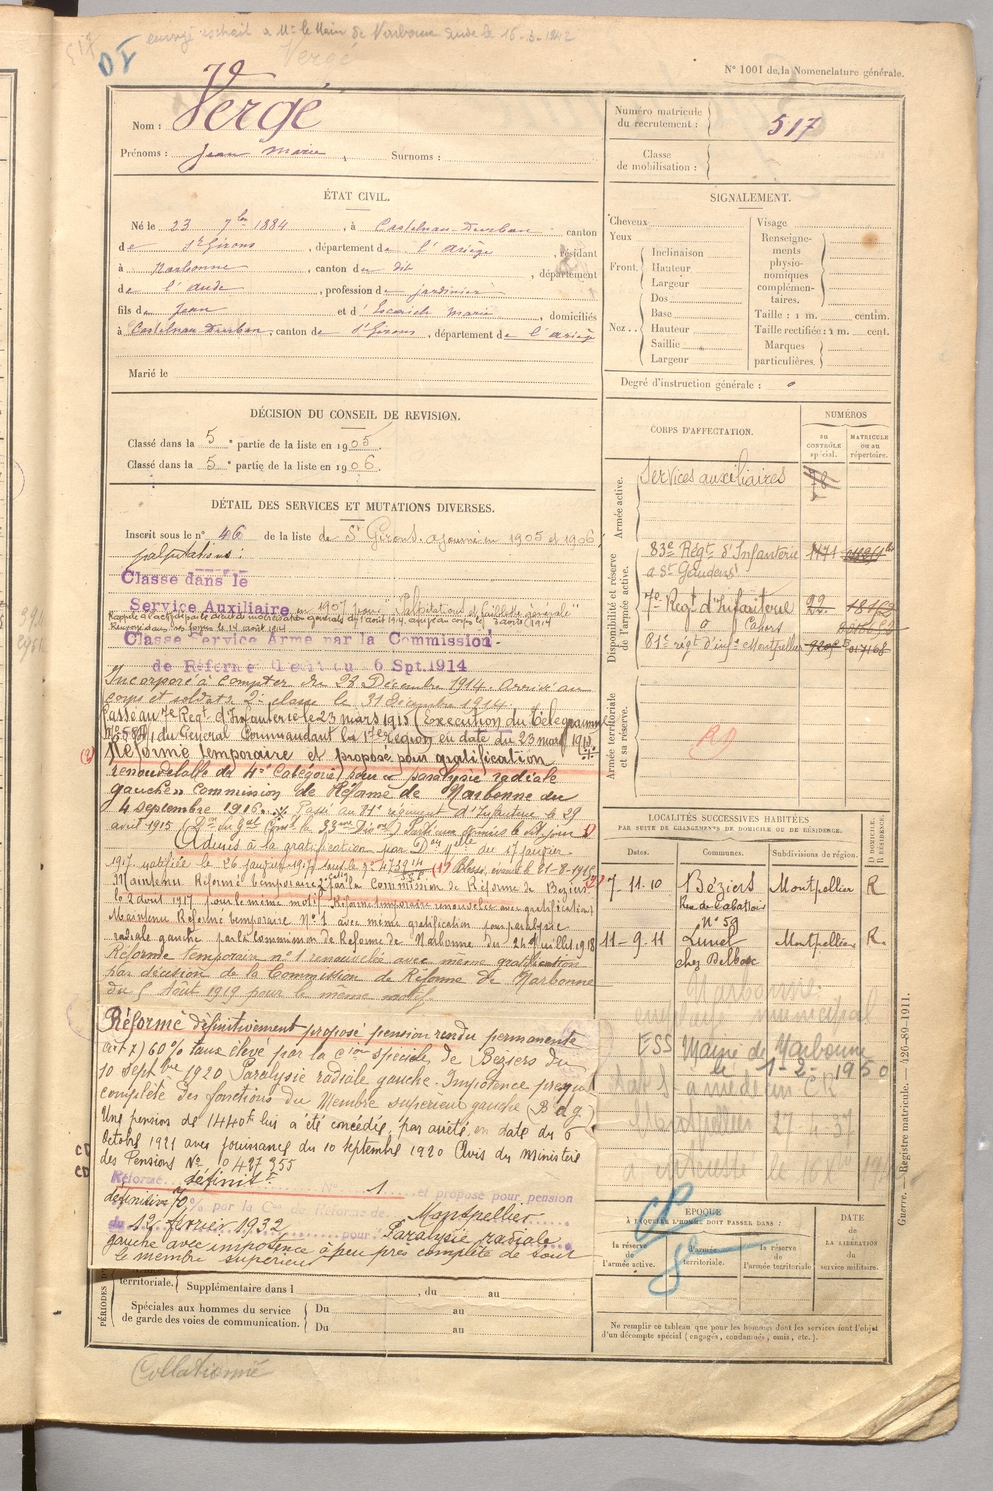 envoyé extrait à Mr le Maire de Narbonne Aude le 16-3-1942
Vergé
517
N° 1001 de la Nomenclature générale.
Nom : Vergé
Prénoms : Jean Marie , Surnoms :
Numéro matricule
du recrutement : 517
Classe
de mobilisation :
ÉTAT CIVIL.
Né le 23 7bre 1884 , à Castelnau-Durban canton
de St Girons , département de l'Ariège , résidant
à Narbonne , canton de dit , département
de l'Aude , profession de jardinier
fils de Jean et d'Escaich Marie , domiciliés
à Castelnau Durban , canton de St Girons , département de l'Ariège
Marié le
SIGNALEMENT.
Cheveux
Yeux
Front.
Inclinaison
Hauteur
Largeur
Nez..
Dos
Base
Hauteur
Saillie
Largeur
Visage
Renseigne-
ments
physio-
nomiques
complémen-
taires.
Taille : 1 m. centim.
Taille rectifiée : 1 m. cent.
Marques
particulières.
Degré d'instruction générale : 0
DÉCISION DU CONSEIL DE REVISION.
Classé dans la 5e partie de la liste en 1905
Classé dans la 5e partie de la liste en 1906
CORPS D'AFFECTATION.
NUMÉROS
AU CONTRÔLE spécial.
MATRICULE ou au répertoire.
Armée active.
Services auxiliaires
Disponibilité et réserve
de l'armée active.
83e Régt d'Infanterie 1171
à St Gaudens
7e Regt d'Infanterie 22
à Cahors
81e régt d'infie Montpellier
Armée territoriale
et sa réserve.
DÉTAIL DES SERVICES ET MUTATIONS DIVERSES.
Inscrit sous le n° 46 de la liste de St Girons. ajourné en 1905 et 1906
palpitations :
Classé dans le
Service Auxiliaire en 1907 pour "Palpitations et faiblesse générale"
Renvoyé dans ses foyers le 14 août 1914
Classé Service Armé par la Commission
de Réforme du 6 Spt. 1914
Incorporé à compter du 28 Décembre 1914. Arrivé au
corps et soldat 2e classe le 31 Décembre 1914.
Passé au 7e Regt d'Infanterie le 23 mars 1915 (exécution du télégramme
du Général Commandant la 17e Région en date du 23 mars 1915
Réformé temporaire et proposé pour gratification
renouvelable de 4e Catégorie pour « paralysie radiale
gauche » Commission de Réforme de Narbonne du
4 septembre 1916. Passé au 81e régiment d'Infanterie le 29
avril 1915
Admis à la gratification par Don du 17 janvier
1917 notifiée le 26 janvier 1917
Maintenu Réformé temporaire par la Commission de Réforme de Béziers
le 2 août 1917 pour le même motif. Réforme temporaire renouvelée avec gratification
Maintenu Réformé temporaire N° 1 avec même gratification pour paralysie
radiale gauche par la Commission de Réforme de Narbonne du 24 Juillet 1918
Réforme temporaire n° 1 renouvelée avec même gratification
par décision de la Commission de Réforme de Narbonne
du 5 Août 1919 pour le même motif.
Réformé définitivement proposé pension rendu permanente
art 7) 60% taux élevé par la Cion spéciale de Béziers du
10 septbre 1920 Paralysie radiale gauche. Impotence presque
complète des fonctions du Membre supérieur gauche
Une pension de 1440f lui a été concédée, par arrêté en date du 6
Octobre 1921 avec jouissance du 10 septembre 1920 Avis du Ministère
des Pensions N° 437955
Réformé définitt N° 1 et proposé pour pension
définitive 70% par la Con de Réforme de Montpellier
du 12 février 1932 pour Paralysie radiale
gauche avec impotence à peu près complète de tout
le membre supérieur
LOCALITÉS SUCCESSIVES HABITÉES
PAR SUITE DE CHANGEMENTS DE DOMICILE OU DE RÉSIDENCE.
Dates.
Communes.
Subdivisions de région.
D. DOMICILE.
R. RÉSIDENCE.
7-11-10 Béziers Montpellier R
Rue de l'abattoir
N° 59
11-9-11 Lunel Montpellier R.
chez Delbosc
Narbonne
employé municipal
ESS Mairie de Narbonne
le 1-2-1950
Montpellier 27-4-37
ÉPOQUE
À LAQUELLE L'HOMME DOIT PASSER DANS :
la réserve
de
l'armée active.
l'armée
territoriale.
la réserve
de
l'armée territoriale
DATE
de
LA LIBÉRATION
du
service militaire.
Ne remplir ce tableau que pour les hommes dont les services font l'objet
d'un décompte spécial (engagés, condamnés, omis, etc.).
PÉRIODES
territoriale. Supplémentaire dans l , du au
Spéciales aux hommes du service
de garde des voies de communication.
Du au
Du au
Collationné
Guerre. — Registre matricule. — 426-89-1911.